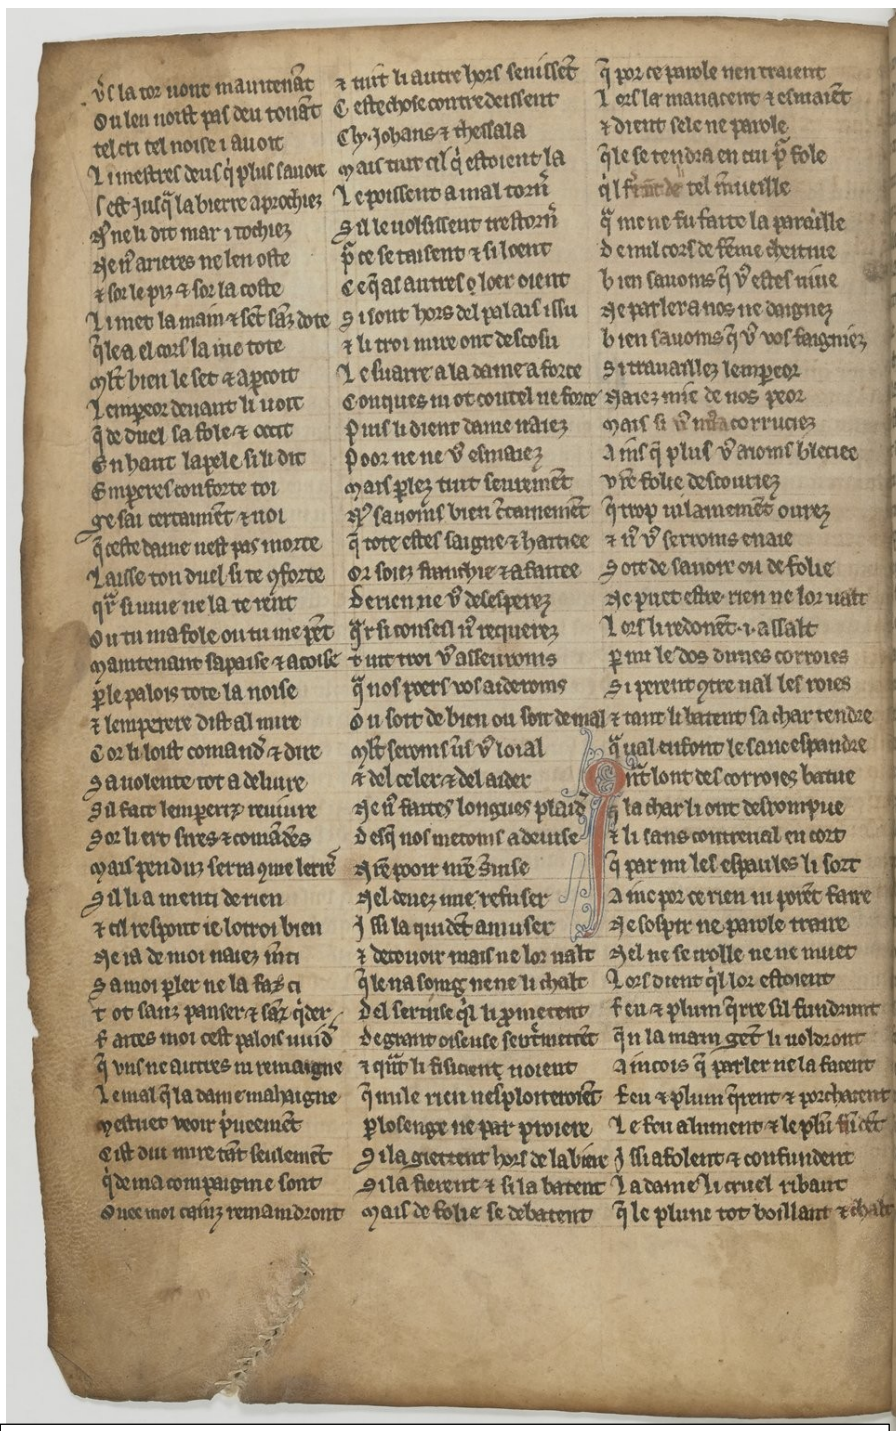 v̄s la tor uont maintenāt
Ou len noist pas deu tonāt
tel cri tel noise i auoit
Li mestres deus q̇ plus sauoit
Sest jusq̄ la bierre aprochiez
Nꝰ ne li dit mar i tochiez
Ne nꝰ arieres ne len oste
⁊ sor le piz ⁊ sor la coste
Li met la main ⁊ sēt sāz dote
q̄le a el cors la uie tote
Ml̄t bien le set ⁊ aꝑcoit
Lempeor deuant li uoit
q̄ de duel sa fole ⁊ ocit
En haut lapele si li dit
Emperes conforte toi
ge sai certainēt ⁊ uoi
q̄ ceste dame nest pas morte
Laisse ton duel si te ꝯforte
qr̄ si uiue ne la te rent
Ou tu mafole ou tu me pēt
Maintenant sapaise ⁊ acoise
ꝑ le palois tote la noise
⁊ lemperere dist al mire
Cor li loist comand̄ ⁊ dire
Sa uolente tot a deliure
Sil fait lemperiz reuiure
Sor li ert sires ⁊ comādes
Mais penduz serra ꝯme lerrē
Sil li a menti de rien
⁊ cil respont ie lotroi bien
Ne ia de moi naiez m̄ci
Sa moi ꝑler ne la faz ci
Tot sanz panser ⁊ sāz q̇der
Faites moi cest palois uuid̄
q̄ uns ne autres ni remaigne
Le mal q̄ la dame mahaigne
Mestuet ueoir ṗueemēt
Cist dui mire tāt seulemēt
q̇ de ma compaignie sont
Auec moi caiūz remaindront
⁊ tuit li autre hors senissēt
Ceste chose contredeissent
Cly. johans ⁊ thessala
Mais tuit cil q̇ estoient la
Le poissent a mal torn̄
Sil le uolsissent trestorn̄
ꝑ ce se taisent ⁊ si loent
Ce q̄ as autres o loer oient
Si sont hors del palais issu
⁊ li troi mire ont descosu
Le suaire a la dame a force
Conques ni ot coutel ne force
Puis li dient dame naiez
Poor ne ne v̄ esmaiez
Mais ꝑlez tuit seurement
Nꝰ sauoms bien c̄tainement
q̄ tote estes saigne ⁊ haitiee
Or soiez franche ⁊ afaitee
De rien ne v̄ desesperez
Qr̄ si conseil nꝰ requerez
Tuit troi v̄ asseuroms
q̄ nos poers vos aideroms
Ou soit de bien ou soit de mal
Ml̄t seroms us v̄ loial
⁊ del celer ⁊ del aider
Ne nꝰ faites longues plaid̄
Desq̄ nos metoms a deuise
Nr̄e pooir nr̄e s̄uise
Nel deuez mie refuser
Issi la quidēt amuser
⁊ decouoir mais ne lor ualt
q̄le na soing ne ne li chalt
Del seruise q̄l li ꝓmetent
De grant oiseuse sentmetēt
⁊ qn̄t li fisicient uoient
q̄ nule rien nesploiteroiēt
ꝑ losenge ne par proiere
Si la gietent hors de la biere
Si la fierent ⁊ si la batent
Mais de folie se debatent
q̄ por ce parole nen traient
Lors la manacent ⁊ esmaiēt
⁊ dient sele ne parole
q̄le se tendra encui ꝑ fole
q̄l tel m̄ueille
q̄ mene fu faite la paraille
De nul cors de fēme cheitiue
Bien sauoms q̄ v̄ estes uiue
Ne parler a nos ne daignez
Bien sauoms q̄ v̄ vos faigniez
Si trauaillez lempeor
Naiez mie de nos peor
Mais si corruciez
Ains q̄ plus v̄ aioms bleciee
vr̄e folie descouriez
q̄ trop uilainemēt ourez
⁊ nꝰ v̄ serroms en aie
Soit de sauoir ou de folie
Ne puet estre rien ne lor ualt
Lors li redonēt .i. assalt
ꝑmi le dos dunes corroies
Si perent ꝯtre ual les roies
⁊ tant li batent sa char tendre
q̄ ual en font le sanc espandre
Qn̄t lont des corroies batue
q̄ la char li ont desrompue
⁊ li sans contreual en cort
q̄ par mi les espaules li sort
Ainc por ce rien ni porēt faire
Ne sospir ne parole traire
Nel ne se crolle ne ne muet
Lors dient q̄l lor estoient
Feu ⁊ plum q̄rre sil fundront
q̄n la main get li uoldront
Aincois q̄ parler ne la facent
Feu ⁊ plum q̄rent ⁊ porchacent
Le feu alument ⁊ le plū
Issi afolent ⁊ confundent
La dame li cruel ribaut
q̄ le plunc tot boillant ⁊ chalt